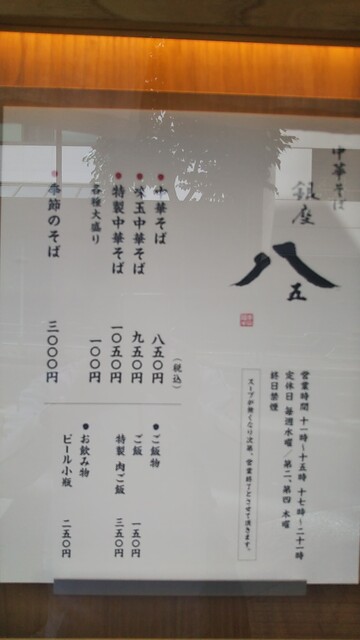 中華そば
銀座
八五
営業時間 十一時〜十五時 十七時〜二十一時
定休日 毎週水曜／第二、第四 木曜
終日禁煙
スープが無くなり次第、営業終了とさせて頂きます。
(税込)
中華そば 八五〇円
味玉中華そば 九五〇円
特製中華そば 一〇五〇円
各種大盛り 一〇〇円
季節のそば 三〇〇〇円
●ご飯物
ご飯 一五〇円
特製 肉ご飯 三五〇円
●お飲み物
ビール小瓶 二五〇円